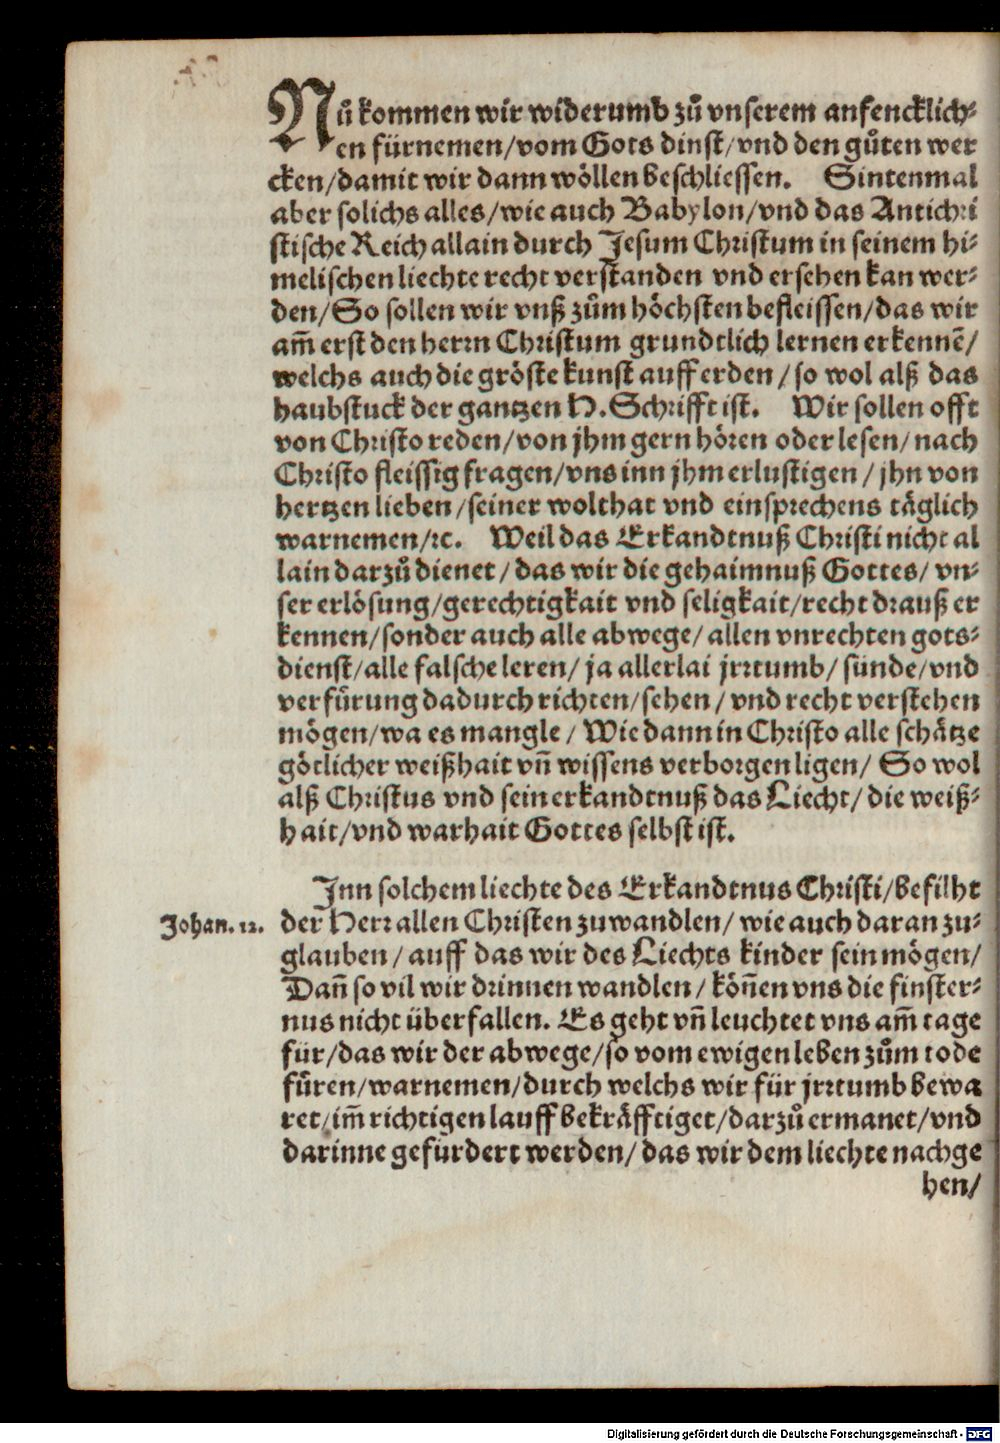 Nů kommen wir widerumb zů vnserem anfencklich⸗
en fürnemen/vom Gots dinst/vnd den gůten wer
cken/damit wir dann wöllen beschliessen. Sintenmal
aber solichs alles/wie auch Babylon/vnd das Antichri
stische Reich allain durch Jesum Christum in seinem hi⸗
melischen liechte recht verstanden vnd ersehen kan wer⸗
den/So sollen wir vnß zům höchsten befleissen/das wir
am̃ erst den herrn Christum grundtlich lernen erkennẽ/
welchs auch die gröste kunst auff erden/so wol alß das
haubstuck der gantzen H. Schrifft ist. Wir sollen offt
von Christo reden/von jhm gern hören oder lesen/nach
Christo fleissig fragen/vns inn jhm erlustigen/jhn von
hertzen lieben/seiner wolthat vnd einsprechens täglich
warnemen/ꝛc. Weil das Erkandtnuß Christi nicht al
lain darzů dienet/das wir die gehaimnuß Gottes/vn⸗
ser erlösung/gerechtigkait vnd seligkait/recht drauß er
kennen/sonder auch alle abwege/allen vnrechten gots⸗
dienst/alle falsche leren/ja allerlai jrrtumb/sünde/vnd
verfürung dadurch richten/sehen/vnd recht verstehen
mögen/wa es mangle/Wie dann in Christo alle schätze
götlicher weißhait vñ wissens verborgen ligen/So wol
alß Christus vnd sein erkandtnuß das Liecht/die weiß⸗
hait/vnd warhait Gottes selbst ist.
Inn solchem liechte des Erkandtnus Christi/befilht
Johan. 12.
der Herr allen Christen zu wandlen/wie auch daran zu⸗
glauben/auff das wir des Liechts kinder sein mögen/
Dañ so vil wir drinnen wandlen/köñen vns die finster⸗
nus nicht überfallen. Es geht vñ leuchtet vns am̃ tage
für/das wir der abwege/so vom ewigen leben zům tode
füren/warnemen/durch welchs wir für jrrtumb bewa
ret/im̃ richtigen lauff bekräfftiget/darzů ermanet/vnd
darinne gefürdert werden/das wir dem liechte nachge
hen/
Digitalisierung gefördert durch die Deutsche Forschungsgemeinschaft - DFG